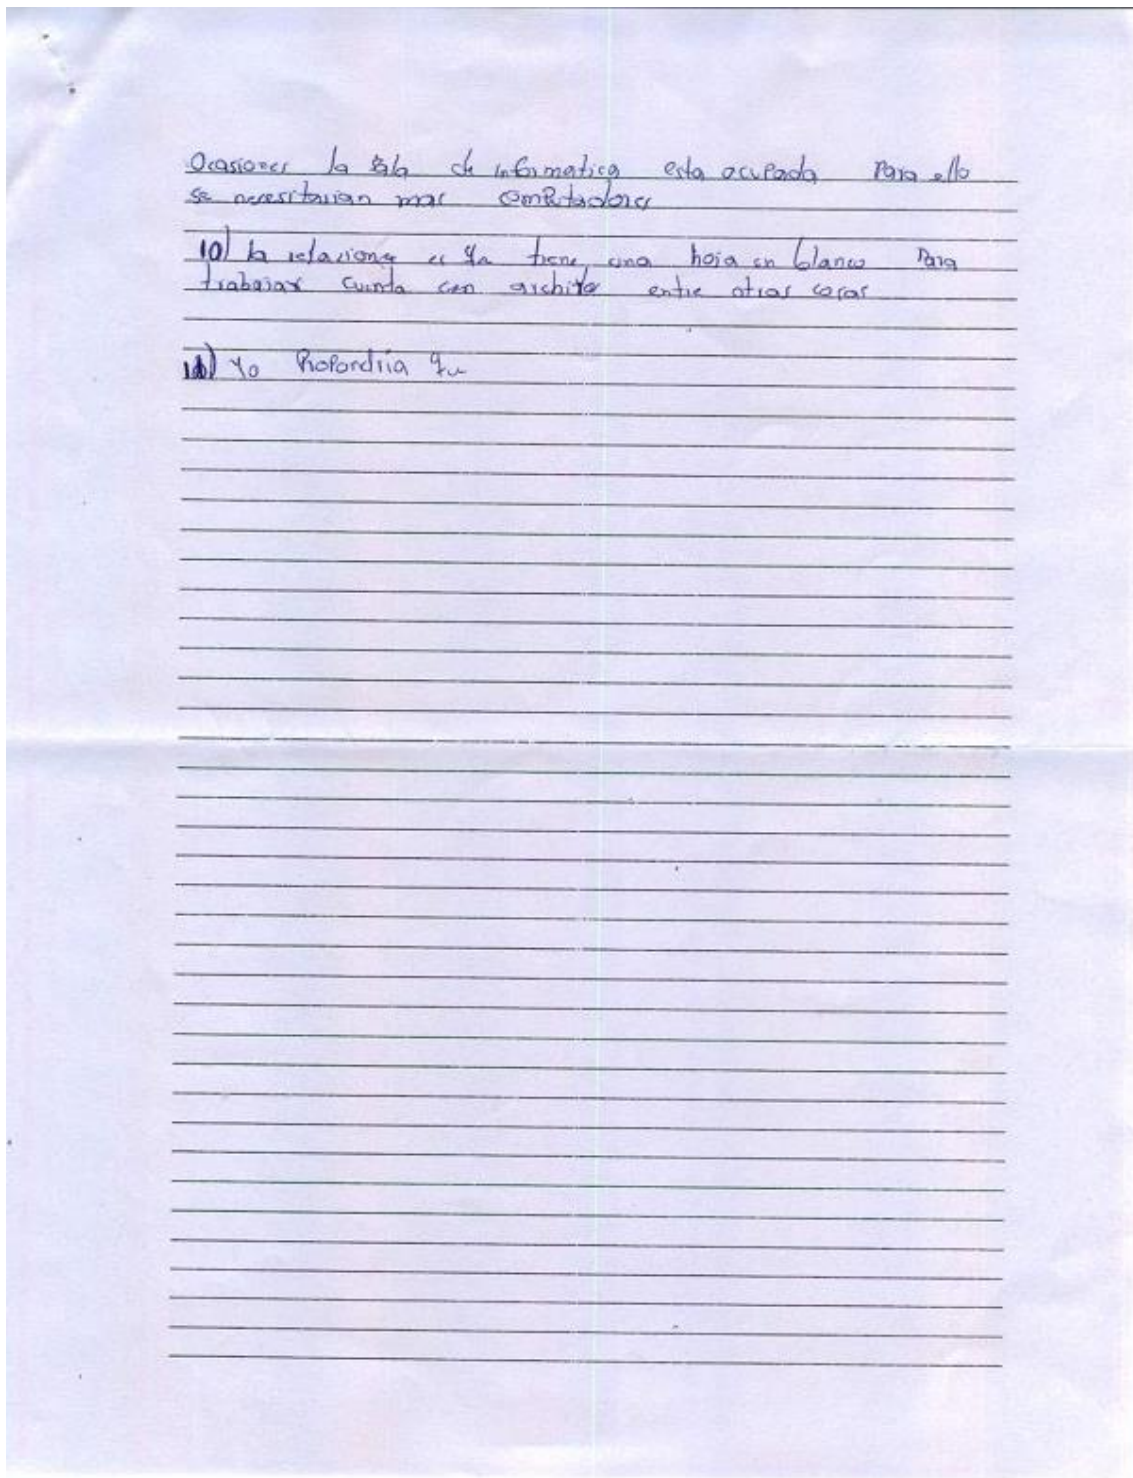 Ocasiones la sala de informatica esta ocupada Para ello
se necesitarian mas computadores
10) la relaciona es Ya tiene una hoja en blanco Para
trabajar cuenta con archivo entre otras cosas
11) Yo Propondria que